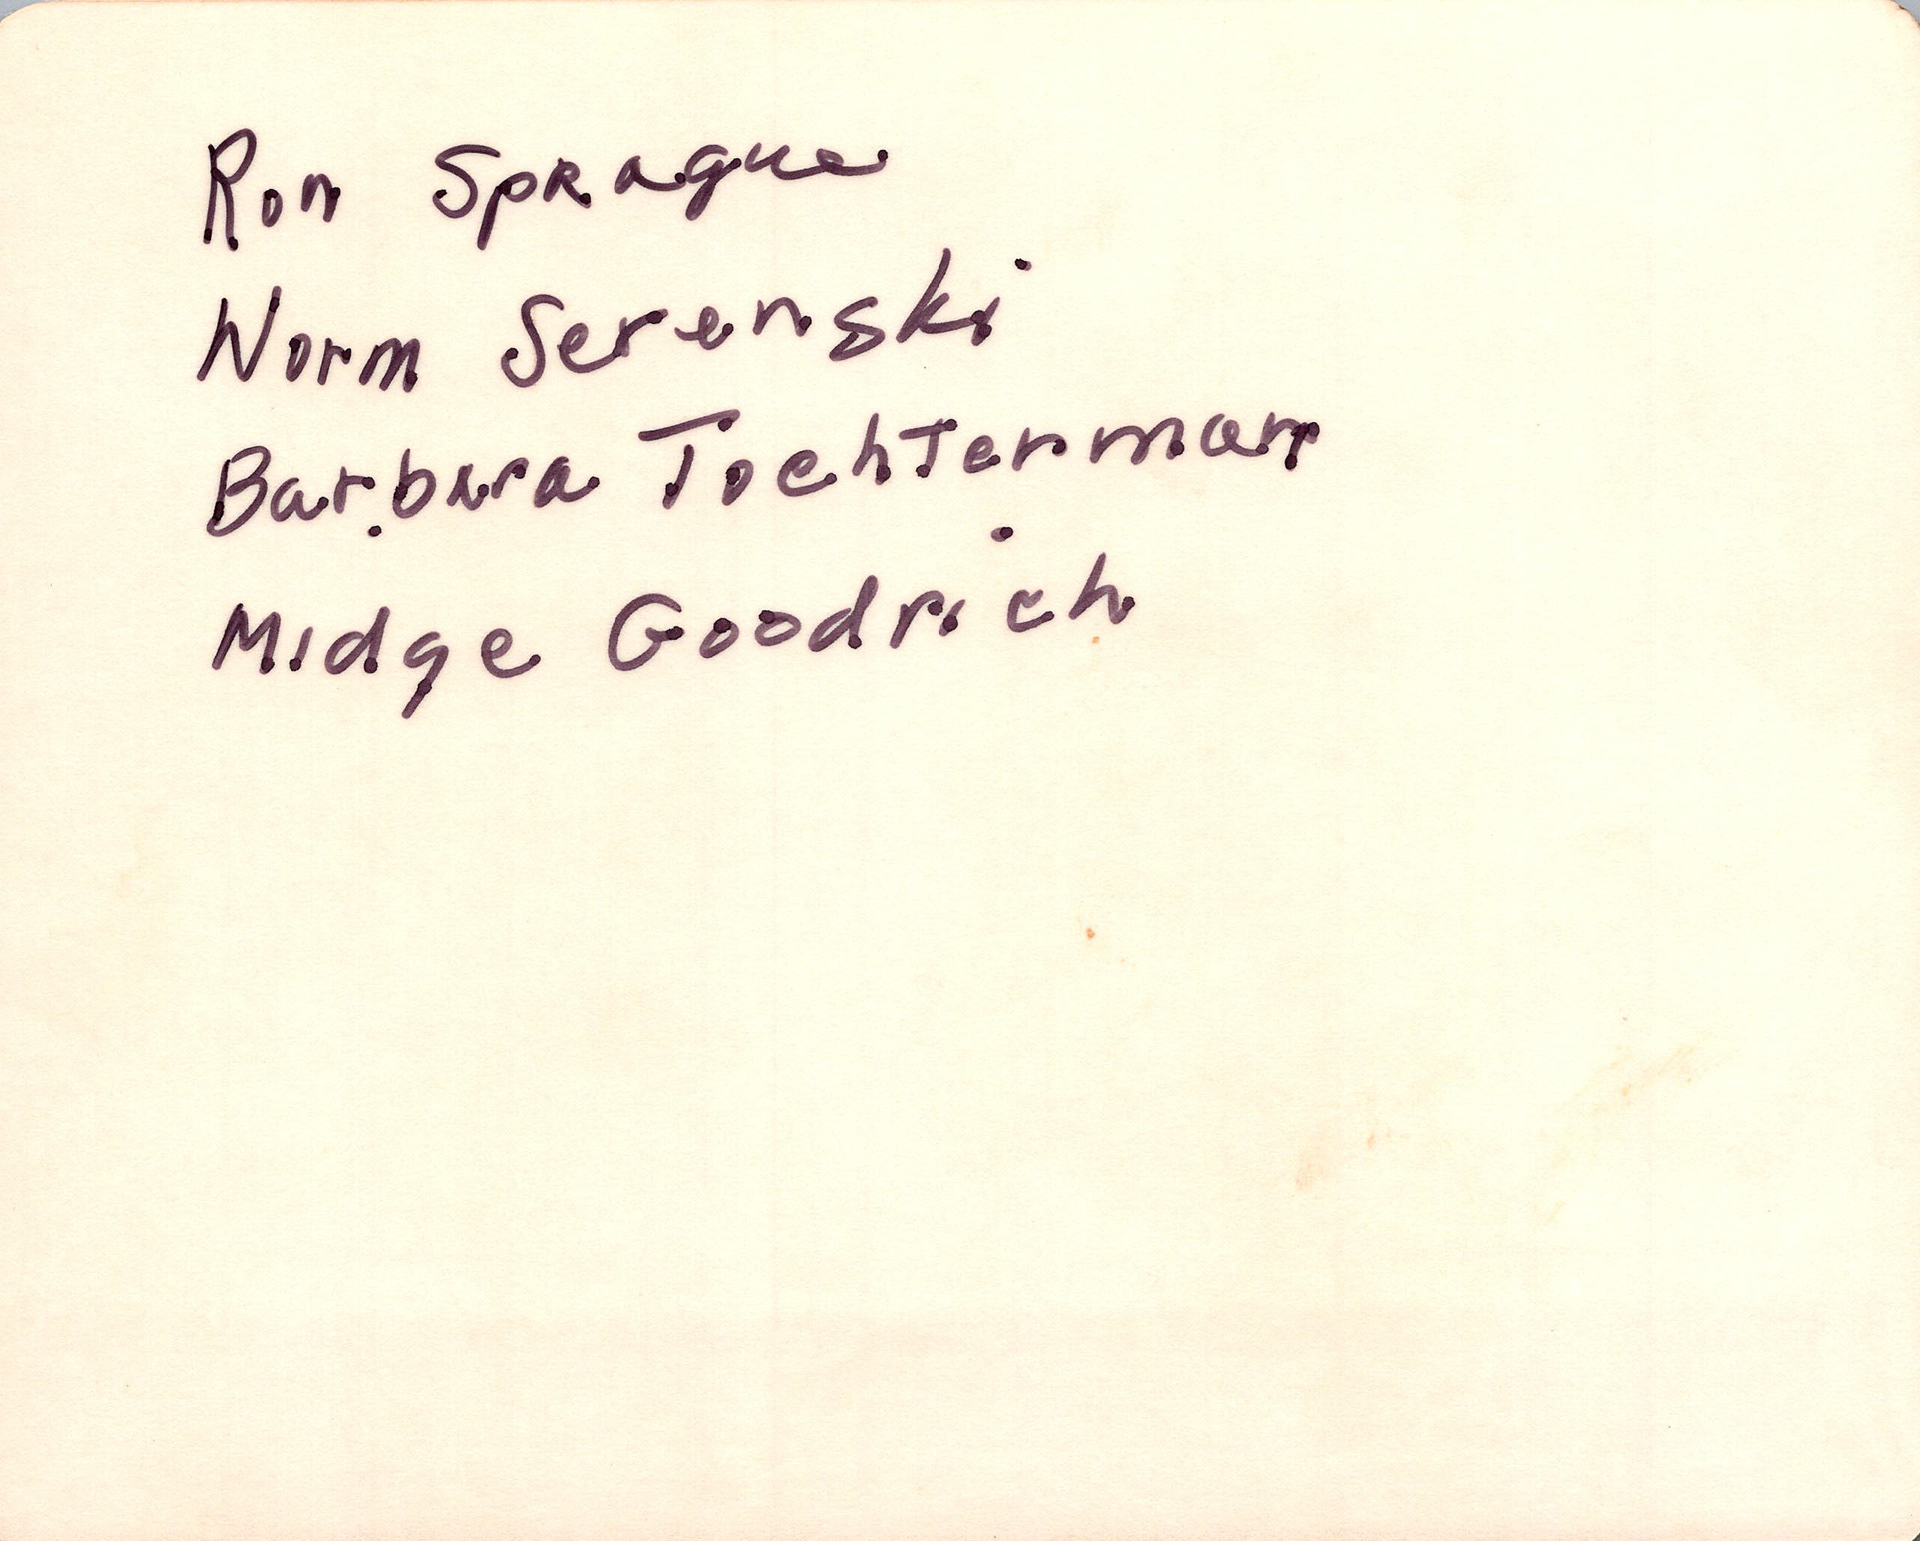 Ron Sprague
Norm Serenski
Barbara Tochterman
Midge Goodrich